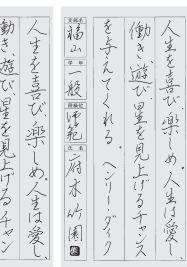 人生を喜び、楽しめ。人生は愛し、
働き、遊び、星を見上げるチャンス
を与えてくれる。ヘンリー・ダイク
支部名
福山
学年
一般
段級位
師範
氏名
府木竹園
人生を喜び、楽しめ。人生は愛し、
動き、遊び、星を見上げるチャン